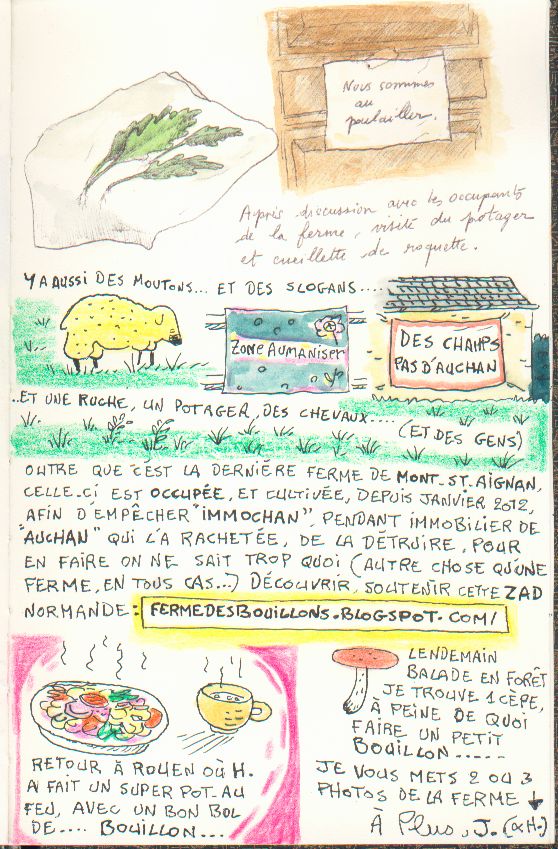 Nous sommes
au
poulailler.
Après discussion avec les occupants
de la ferme, visite du potager
et cueillette de roquette.
Y A AUSSI DES MOUTONS... ET DES SLOGANS....
ZONE AUMANISER
DES CHAMPS
PAS D'AUCHAN
..ET UNE RUCHE, UN POTAGER, DES CHEVAUX....
(ET DES GENS)
OUTRE QUE C'EST LA DERNIÈRE FERME DE MONT-ST-AIGNAN,
CELLE-CI EST OCCUPÉE, ET CULTIVÉE, DEPUIS JANVIER 2012,
AFIN D'EMPÊCHER "IMMOCHAN", PENDANT IMMOBILIER DE
"AUCHAN" QUI L'A RACHETÉE, DE LA DÉTRUIRE, POUR
EN FAIRE ON NE SAIT TROP QUOI (AUTRE CHOSE QU'UNE
FERME, EN TOUS CAS...) DÉCOUVRIR, SOUTENIR CETTE ZAD
NORMANDE : FERMEDESBOUILLONS.BLOGSPOT.COM/
RETOUR À ROUEN OÙ H.
A FAIT UN SUPER POT-AU
FEU, AVEC UN BON BOL
DE.... BOUILLON...
LENDEMAIN
BALADE EN FORÊT
JE TROUVE 1 CÈPE,
À PEINE DE QUOI
FAIRE UN PETIT
BOUILLON.....
JE VOUS METS 2 OU 3
PHOTOS DE LA FERME ↓
À Plus, J. (& H.)